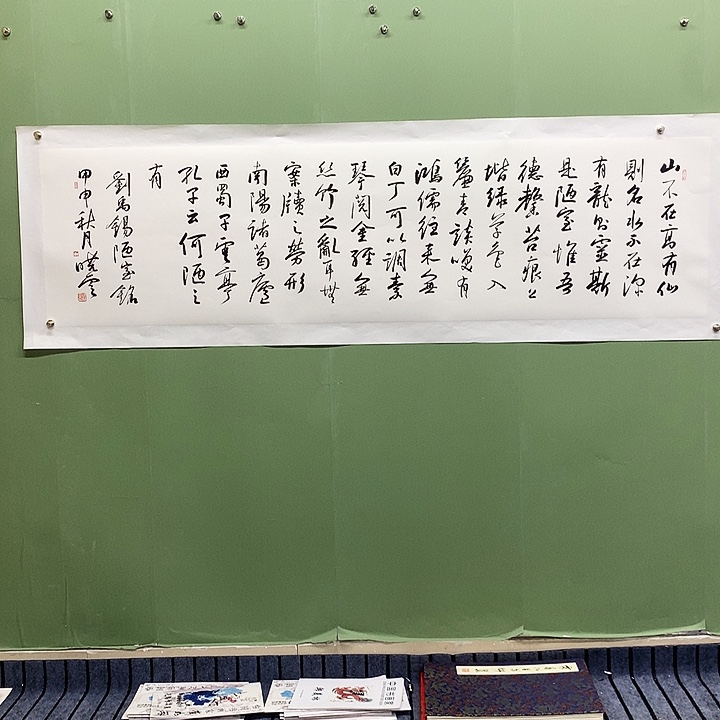 山不在高有仙
則名水不在深
有龍則靈斯
是陋室惟吾
德馨苔痕上
堦綠草色入
簾青談笑有
鴻儒往来無
白丁可以調素
琴閱金經無
丝竹之亂耳無
案牘之勞形
南陽諸葛廬
西蜀子雲亭
孔子云何陋之
有
劉禹錫陋室銘
甲申秋月曉雲